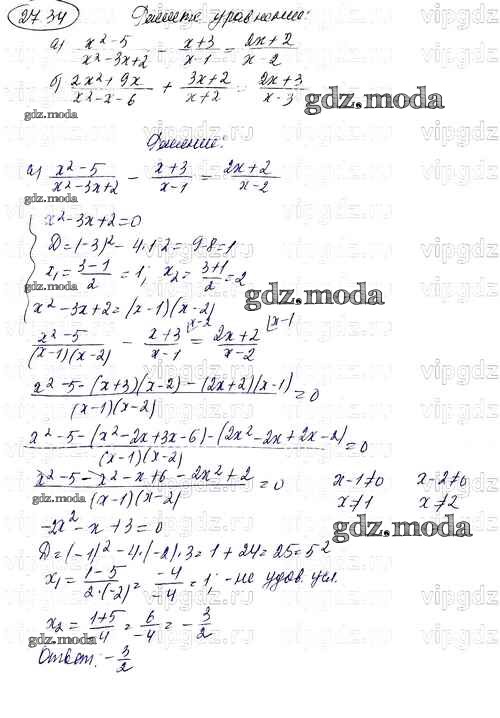 27.34 Решите уравнение:
а) x²-5/x²-3x+2 - x+3/x-1 = 2x+2/x-2
б) 2x²+9x/x²-x-6 + 3x+2/x+2 = 2x+3/x-3
gdz.moda
Решение:
а) x²-5/x²-3x+2 - x+3/x-1 = 2x+2/x-2
gdz.moda
x²-3x+2=0
D=(-3)²-4·1·2=9-8=1
x₁=3-1/2=1; x₂=3+1/2=2
gdz.moda
x²-3x+2=(x-1)(x-2)
gdz.moda
x²-5/(x-1)(x-2) - x+3/x-1 |x-2 = 2x+2/x-2 |x-1
x²-5-(x+3)(x-2)-(2x+2)(x-1)/(x-1)(x-2)=0
x²-5-(x²-2x+3x-6)-(2x²-2x+2x-2)/(x-1)(x-2)=0
x²-5-x²-x+6-2x²+2/(x-1)(x-2)=0 x-1≠0 x-2≠0
gdz.moda x≠1 x≠2
-2x²-x+3=0
gdz.moda
D=(-1)²-4·(-2)·3=1+24=25=5²
x₁=1-5/2·(-2)=-4/-4=1; - не удов. усл.
x₂=1+5/-4=6/-4=-3/2
gdz.moda
Ответ: -3/2